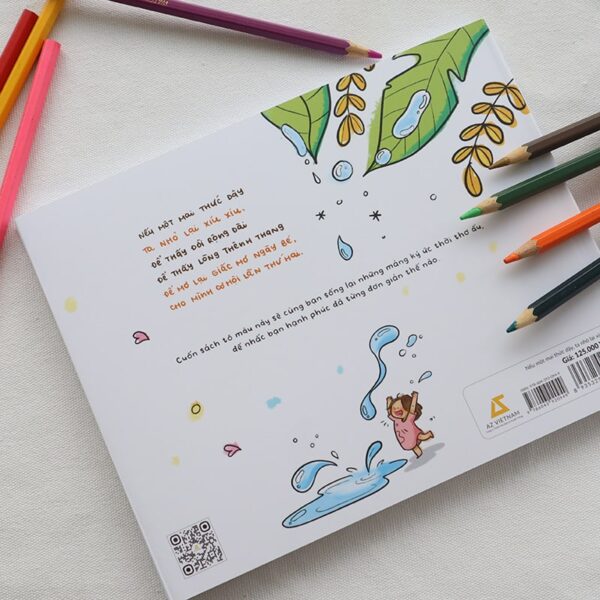 NẾU MỘT MAI THỨC DẬY
TA NHỎ LẠI XÍU XIU.
ĐỂ THẤY ĐỜI RỘNG DÀI
ĐỂ THẤY LÒNG THÊNH THANG
ĐỂ MƠ LẠI GIẤC MƠ NGÀY BÉ,
CHO MÌNH CƠ HỘI LẦN THỨ HAI.
Cuốn sách tô màu này sẽ cùng bạn sống lại những mảng ký ức thời thơ ấu,
để nhắc bạn hạnh phúc đã từng đơn giản thế nào.
Nếu một mai thức dậy, ta nhỏ lại
Giá: 125.000
AZ VIETNAM